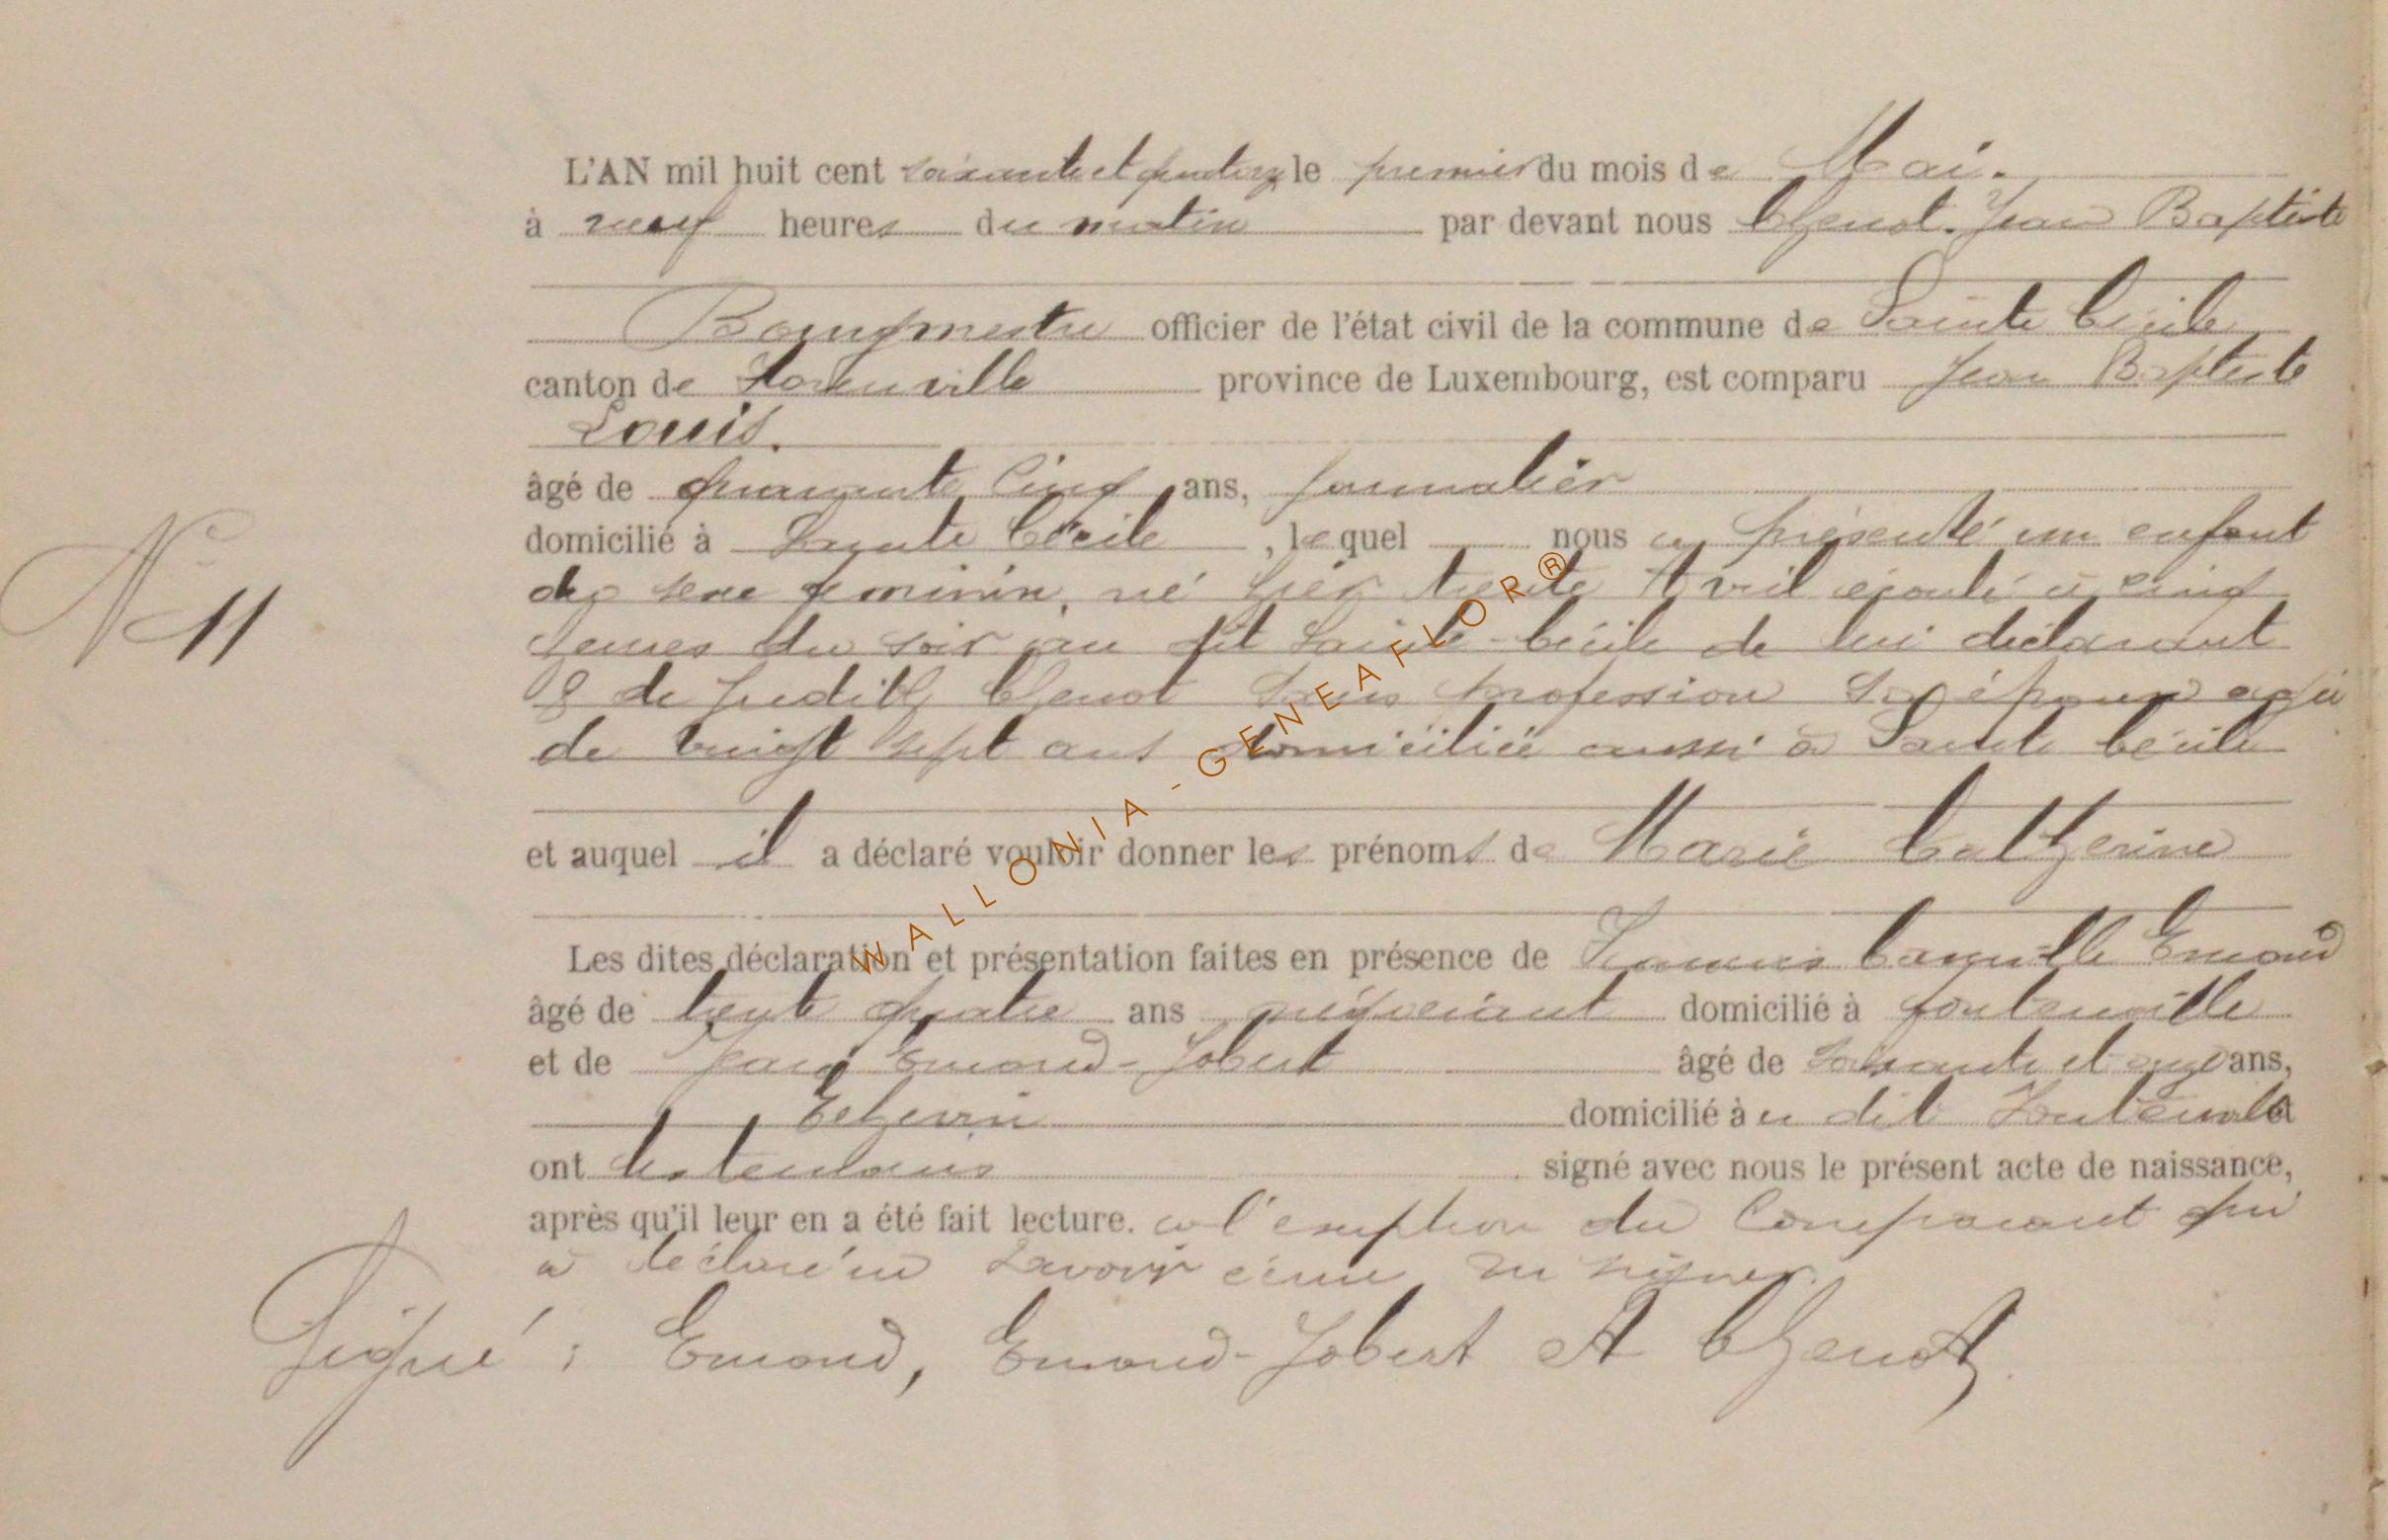 L'AN mil huit cent soixante et quatorze le premier du mois de Mai.
à neuf heures du matin par devant nous Chenot. Jean Baptiste
Bourgmestre officier de l'état civil de la commune de Sainte Cécile
canton de Florenville province de Luxembourg, est comparu Jean Baptiste
Louis.
âgé de quarante Cinq ans, journalier
domicilié à Sainte Cécile, lequel nous a présenté un enfant
du sexe feminin, né hier trente Avril écoulé à cinq
heures du soir au dit Sainte-Cécile de lui déclarant
& de Judith Chenot sans profession Son épouse agée
de vingt sept ans domiciliée aussi à Sainte Cécile
N° 11
et auquel il a déclaré vouloir donner les prénoms de Marie Catherine
Les dites déclaration et présentation faites en présence de Camille Emond
âgé de trente quatre ans négociant domicilié à fontenoille
et de Jean Emond-Jobert âgé de soixante et onze ans,
Echevin domicilié au dit Fontenoille et
ont les témoins signé avec nous le présent acte de naissance,
après qu'il leur en a été fait lecture. a l'exeption du Comparant qui
a déclaré ne savoir écrire ni signer.
Signé : Emond, Emond-Jobert et Chenot.
WALLONIA - GENEAFLOR®